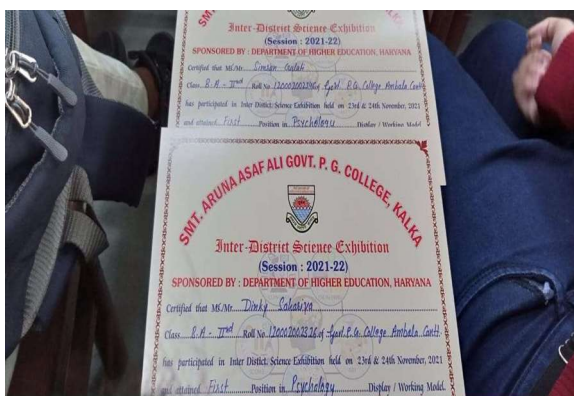 Inter-District Science Exhibition
(Session : 2021-22)
SPONSORED BY : DEPARTMENT OF HIGHER EDUCATION, HARYANA
Certified that Ms/Mr. Simran
Class B.A - IInd Roll No. of Govt. P.G. College Ambala Cantt
has participated in Inter District Science Exhibition held on 23rd & 24th November, 2021
and attained First Position in Psychology Display / Working Model.
SMT. ARUNA ASAF ALI GOVT. P. G. COLLEGE, KALKA
Inter-District Science Exhibition
(Session : 2021-22)
SPONSORED BY : DEPARTMENT OF HIGHER EDUCATION, HARYANA
Certified that MS/Mr. Dimky
Class B.A - IInd Roll No. 120002002326 of Govt. P.G. College Ambala Cantt.
has participated in Inter Distict. Science Exhibition held on 23rd & 24th November, 2021
and attained First Position in Psychology Display / Working Model.